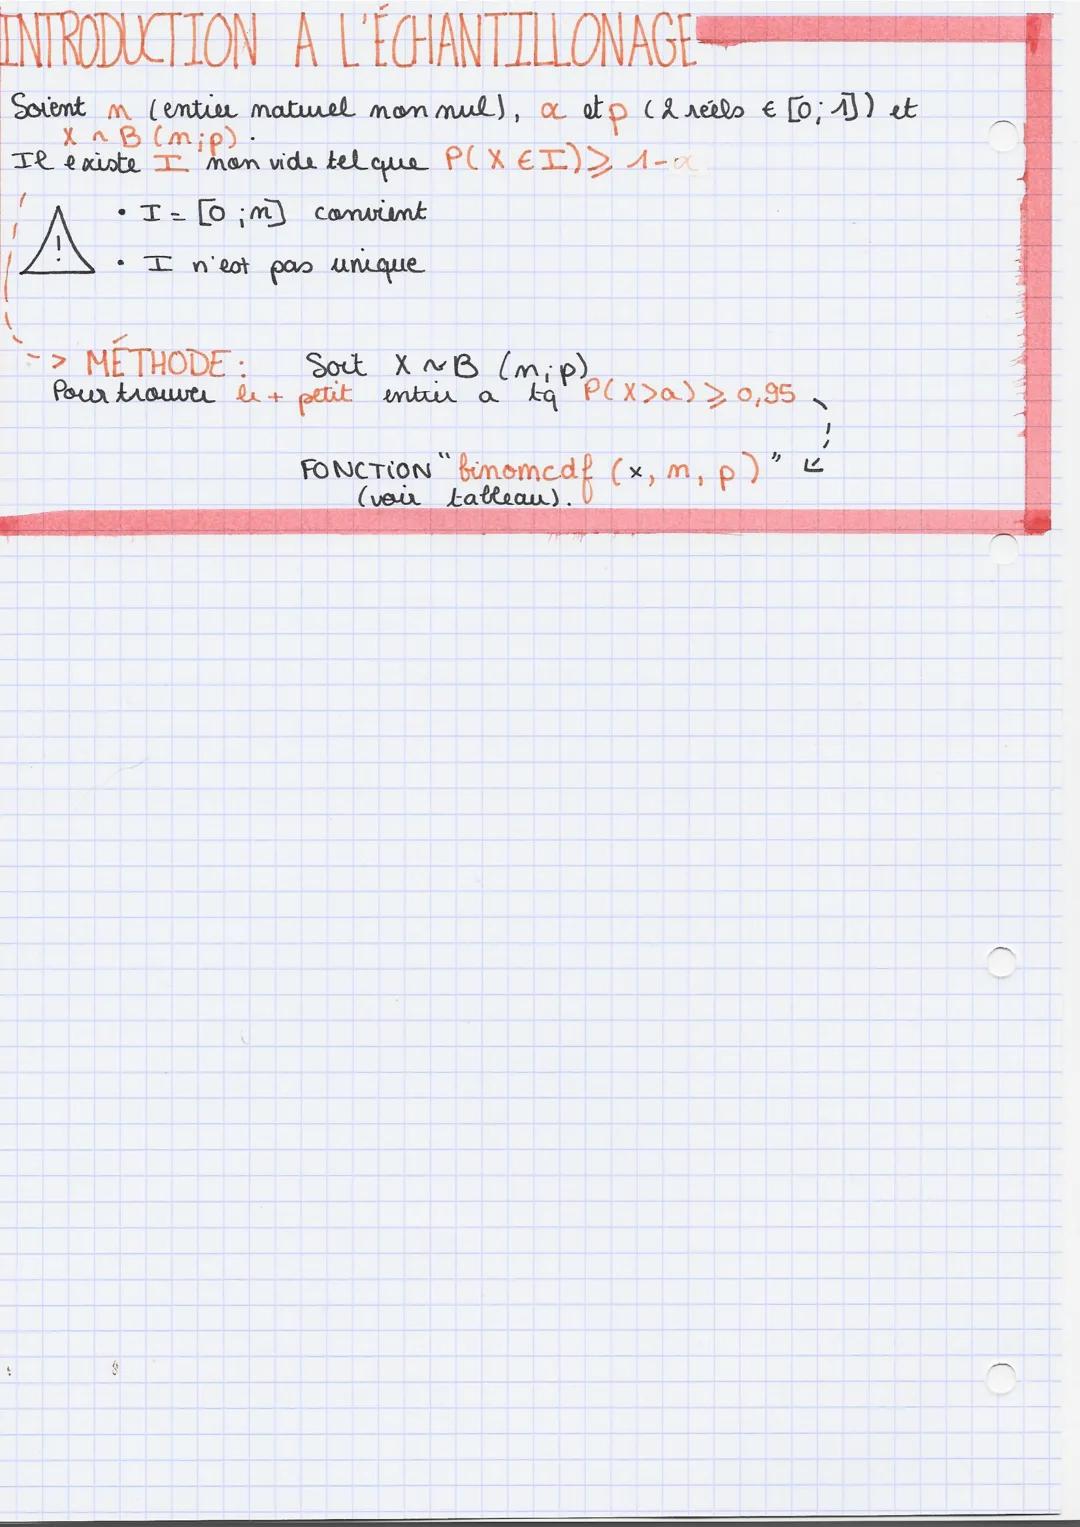 INTRODUCTION A L'ÉCHANTILLONAGE
Soient n (entier naturel non nul), α et p (2 réels ∈ [0;1]) et
X ~ B (n;p).
Il existe I non vide tel que P(X ∈ I) ⩾ 1-α
• I = [0;n] convient
!
• I n'est pas unique
-> MÉTHODE: Soit X ~ B (n;p)
Pour trouver le + petit entier a tq P(X>a) ⩾ 0,95
FONCTION "binomcdf (x, n, p)"
(voir tableau).